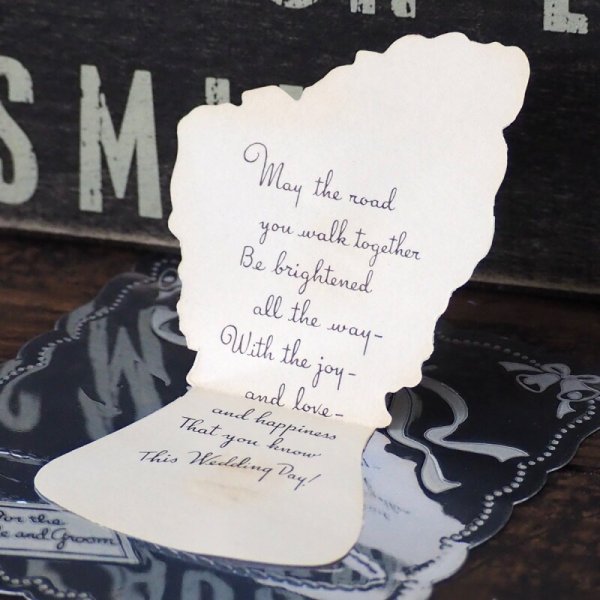 SM
May the road
you walk together
Be brightened
all the way-
With the joy-
and love-
and happiness
That you know
This Wedding Day!
For the
e and Groom